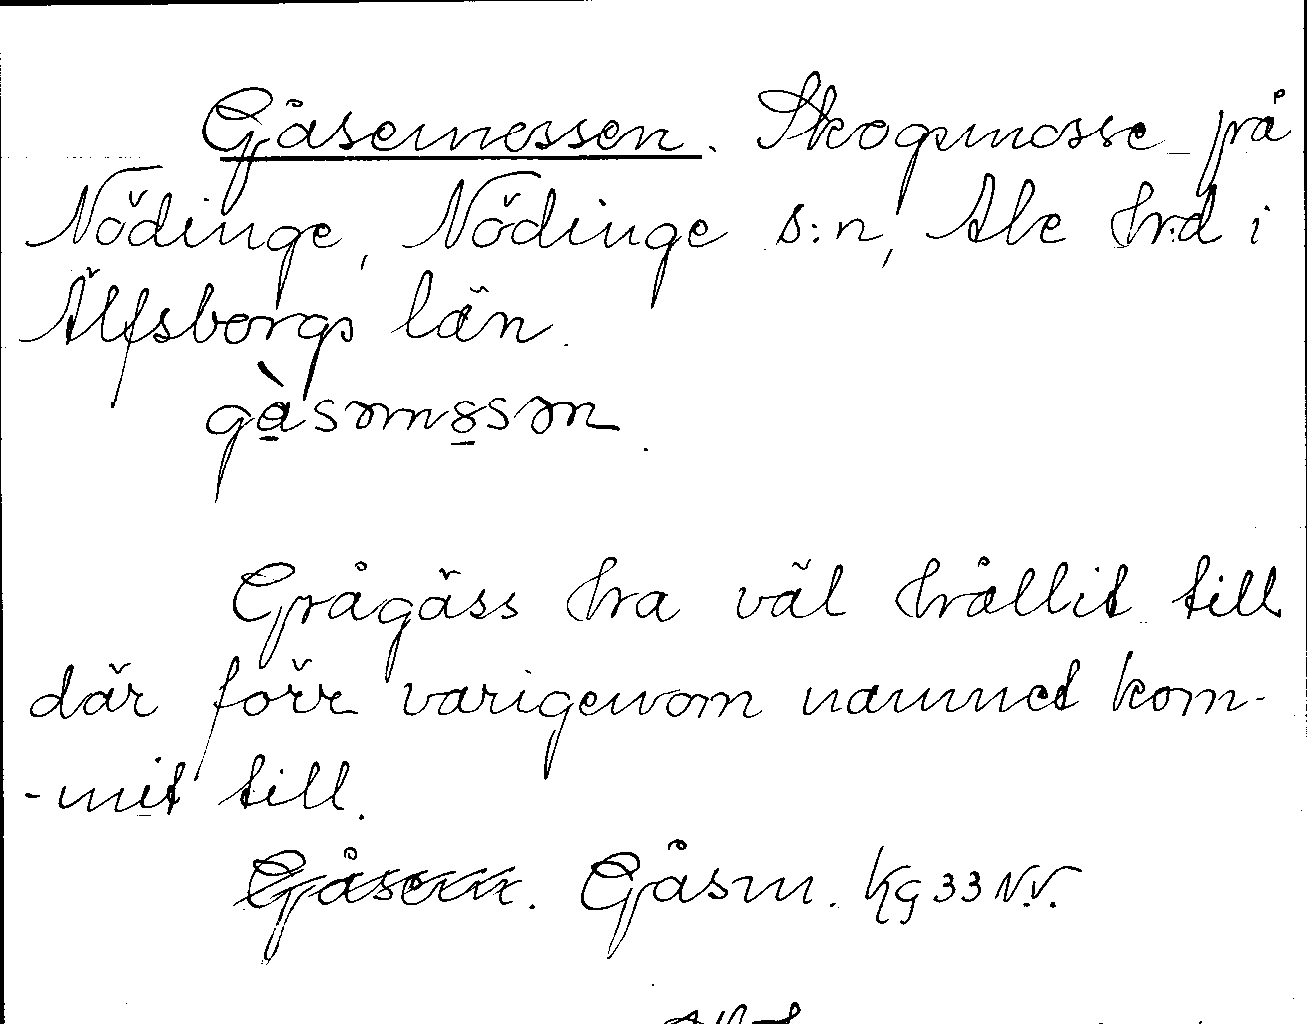 Gåsemossen. Skogsmosse på
Nödinge, Nödinge s:n, Ale hrd i
Älfsborgs län.
gàsəmȯsən.
Grågäss ha väl hållit till
där förr varigenom namnet kom-
-mit till.
Gåsem. Gåsm. Kg 33 N.V.